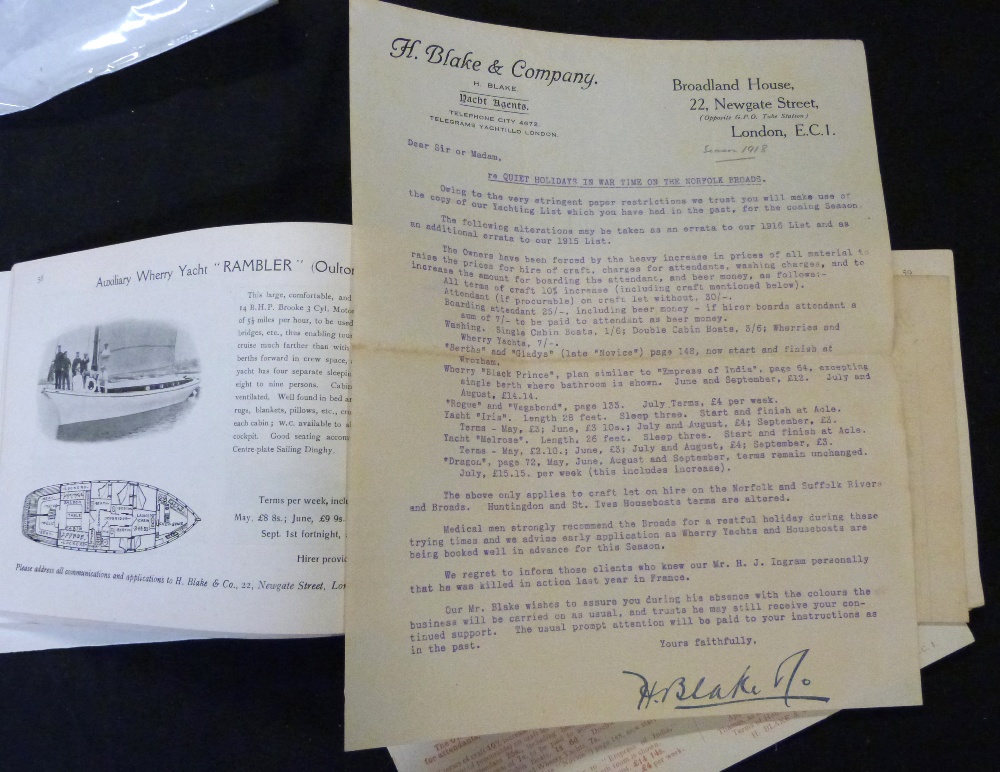 H. Blake & Company.
H. BLAKE.
Yacht Agents.
TELEPHONE CITY 4672.
TELEGRAMS YACHTILLO LONDON.
Broadland House,
22, Newgate Street,
(Opposite G.P.O. Tube Station)
London, E.C.1.
Season 1918
Dear Sir or Madam,
re QUIET HOLIDAYS IN WAR TIME ON THE NORFOLK BROADS.
Owing to the very stringent paper restrictions we trust you will make use of
the copy of our Yachting List which you have had in the past, for the coming Season.
The following alterations may be taken as an errata to our 1916 List and as
an additional errata to our 1915 List.
The Owners have been forced by the heavy increase in prices of all material to
raise the prices for hire of craft, charges for attendants, washing charges, and to
increase the amount for boarding the attendant, and beer money, as follows:-
All terms of craft 10% increase (including craft mentioned below).
Attendant (if procurable) on craft let without, 30/-.
Boarding attendant 25/-, including beer money - if hirer boards attendant a
sum of 7/- to be paid to attendant as beer money.
Washing. Single Cabin Boats, 1/6; Double Cabin Boats, 3/6; Wherries and
Wherry Yachts, 7/-.
"Bertha" and "Gladys" (late "Novice") page 148, now start and finish at
Wroxham.
Wherry "Black Prince", plan similar to "Empress of India", page 64, excepting
single berth where bathroom is shown. June and September, £12. July and
August, £14.14.
"Rogue" and "Vagabond", page 133. July Terms, £4 per week.
Yacht "Iris". Length 28 feet. Sleep three. Start and finish at Acle.
Terms - May, £3; June, £3 10s.; July and August, £4; September, £3.
Yacht "Melrose". Length, 26 feet. Sleep three. Start and finish at Acle.
Terms - May, £2.10.; June, £3; July and August, £4; September, £3.
"Dragon", page 72, May, June, August and September, terms remain unchanged.
July, £15.15. per week (this includes increase).
The above only applies to craft let on hire on the Norfolk and Suffolk Rivers
and Broads. Huntingdon and St. Ives Houseboats terms are altered.
Medical men strongly recommend the Broads for a restful holiday during these
trying times and we advise early application as Wherry Yachts and Houseboats are
being booked well in advance for this Season.
We regret to inform those clients who knew our Mr. H. J. Ingram personally
that he was killed in action last year in France.
Our Mr. Blake wishes to assure you during his absence with the colours the
business will be carried on as usual, and trusts he may still receive your con-
tinued support. The usual prompt attention will be paid to your instructions as
in the past.
Yours faithfully,
H. Blake & Co
58
Auxiliary Wherry Yacht "RAMBLER" (Oulton
This large, comfortable, and
14 B.H.P. Brooke 3 Cyl. Motor
of 5½ miles per hour, to be used
bridges, etc., thus enabling
cruise much farther than
berths forward in crew space,
yacht has four separate
eight to nine persons. Cabin
ventilated. Well found in
rugs, blankets, pillows, etc.,
each cabin; w.c. available to
cockpit. Good seating
Centre-plate Sailing Dinghy.
Terms per week,
May. £8 8s.; June, £9 9s.
Sept. 1st fortnight,
Hirer
Please address all communications and applications to H. Blake & Co., 22, Newgate Street,
59